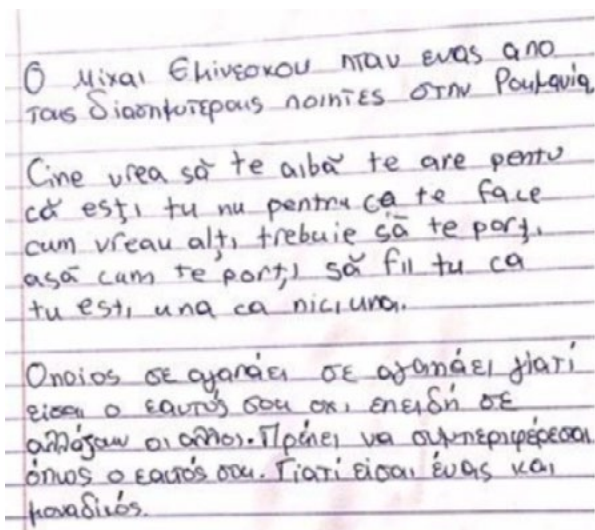 Ο Μιχαι Εμινεσκου ηταν ενας απο
τους διασημοτερους ποιητες στην Ρουμανια
Cine vrea să te aibă te are pentu
că ești tu nu pentru ca te face
cum vreau alți trebuie să te porți
așă cum te porți să fii tu ca
tu ești una ca niciuna.
Οποιος σε αγαπάει σε αγαπάει γιατί
είσαι ο εαυτός σου οχι επειδή σε
αλλάζουν οι άλλοι. Πρέπει να συμπεριφέρεσαι
όπως ο εαυτός σου. Γιατί είσαι ένας και
μοναδικός.